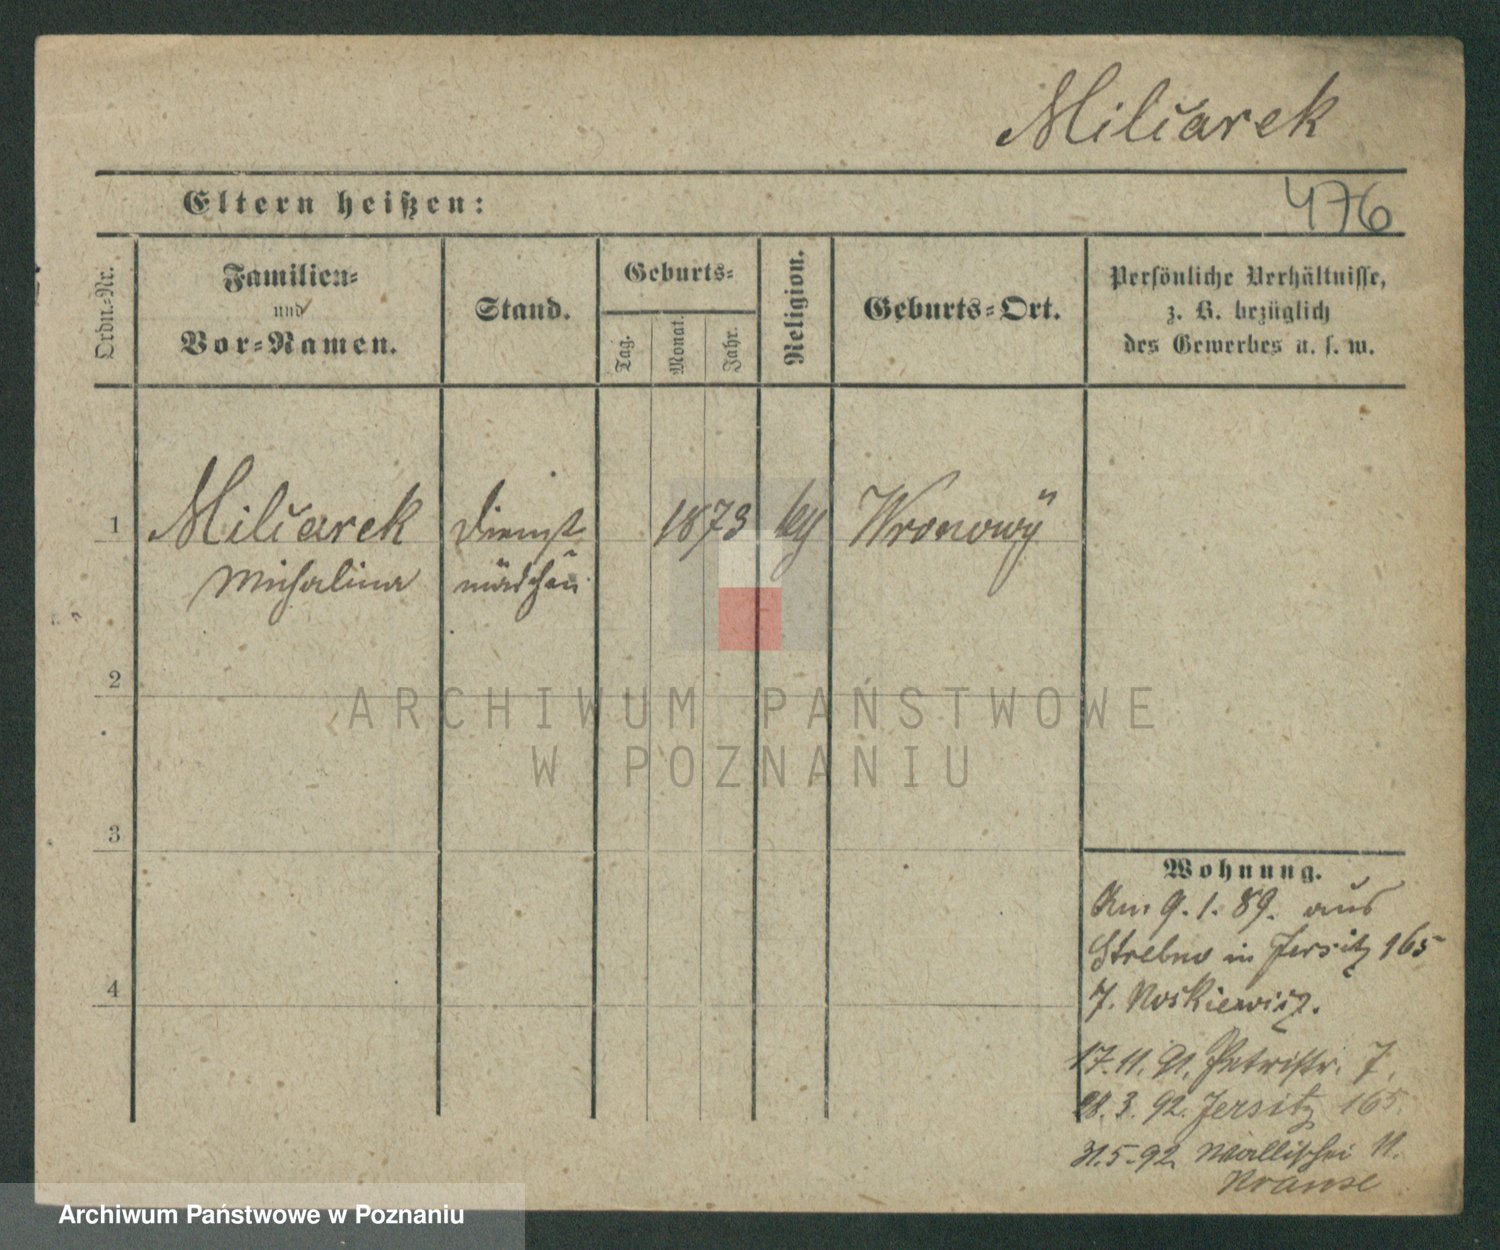 Miliarek
Eltern heißen:
476
Ordn.-Nr.
Familien-
und
Vor-Namen.
Stand.
Geburts-
Tag.
Monat.
Jahr.
Religion.
Geburts-Ort.
Persönliche Verhältnisse,
z. B. bezüglich
des Gewerbes u. s. w.
1
Miliarek
Michalina
Dienst
mädchen
1873
Wronowy
2
3
4
Wohnung.
Am 9. 1. 89. aus
Strelno in Jersitz 165
J. Noskiewicz.
17. 11. 91. Petristr. 7.
28. 3. 92. Jersitz 165.
31. 5. 92 Wallischei 11.
Krause
ARCHIWUM PAŃSTWOWE
W POZNANIU
Archiwum Państwowe w Poznaniu